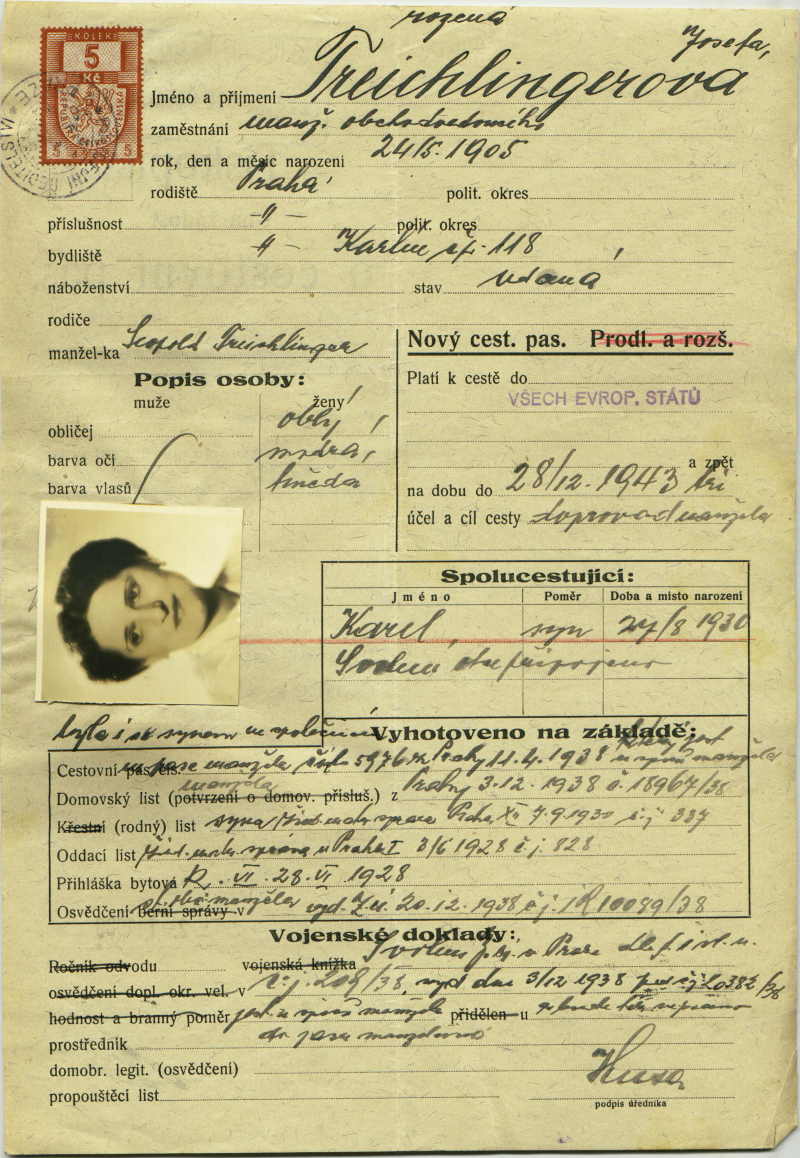 rozená
Josefa,
KOLEK
5
Kč
REPUBLIKA ČESKOSLOVENSKÁ
5 5
Jméno a příjmení Treichlingerova
zaměstnání manž. obchodvedoucího
rok, den a měsíc narození 24/5. 1905
rodiště Praha polit. okres
příslušnost -"- polit. okres
bydliště -"- Karlín čp. 118
náboženství stav vdaná
rodiče
manžel-ka Leopold Treichlinger
Nový cest. pas. Prodl. a rozš.
Popis osoby:
Platí k cestě do
VŠECH EVROP. STÁTŮ
muže ženy
obličej oblý
barva očí modrá,
barva vlasů hnědá
a zpět
na dobu do 28/12. 1943 tři
účel a cíl cesty doprovod manžela
Spolucestující:
Jméno Poměr Doba a místo narození
Karel, syn 27/8 1930
Svolení otce připojeno
byla i se synem
Vyhotoveno na základě:
Cestovní pas čís. v pase manžela čís. 5976 Prahy 11.4.1938
manžela
Domovský list (potvrzení o domov. přísluš.) z Prahy 3.12.1938 č. 18967/38
Křestní (rodný) list syna Praha XII 7.9.1930 č.j. 337
Oddací list Žid. matr. správa v Praha I 3/6 1928 č.j. 828
Přihláška bytová VI 28. VI 1928
st. obč. manžela
Osvědčení berní správy v vyd. Z.ú. 20.12.1938 č.j. 1R10089/38
Vojenské doklady:
Ročník odvodu vojenská knížka Svolení v Praze
osvědčení dopl. okr. vel. v č.j. 209/38, vyd dne 3/12 1938 pod čj 20382/38
hodnost a branný poměr přidělen u
prostředník do pasu
domobr. legit. (osvědčení)
propouštěcí list
Husa
podpis úředníka